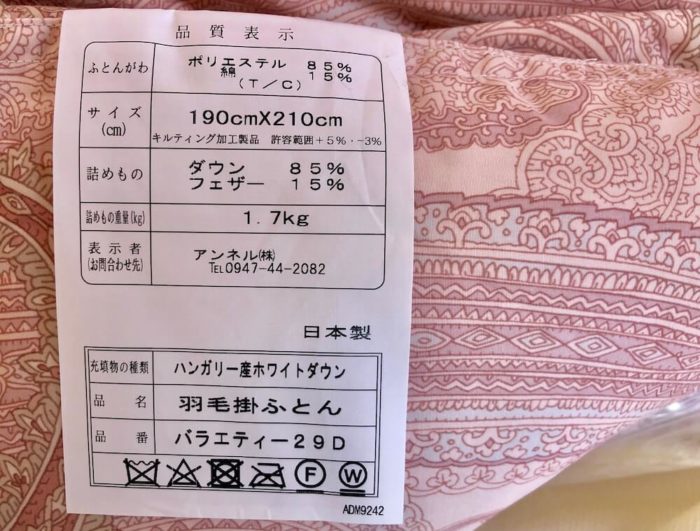 品質表示
ふとんがわ
ポリエステル 85%
綿 15%
(T/C)
サイズ
(cm)
190cmX210cm
キルティング加工製品 許容範囲+5%・-3%
詰めもの
ダウン 85%
フェザー 15%
詰めもの重量(kg)
1.7kg
表示者
(お問合わせ先)
アンネル㈱
TEL0947-44-2082
日本製
充填物の種類 ハンガリー産ホワイトダウン
品名 羽毛掛ふとん
品番 バラエティー29D
F W
ADM9242